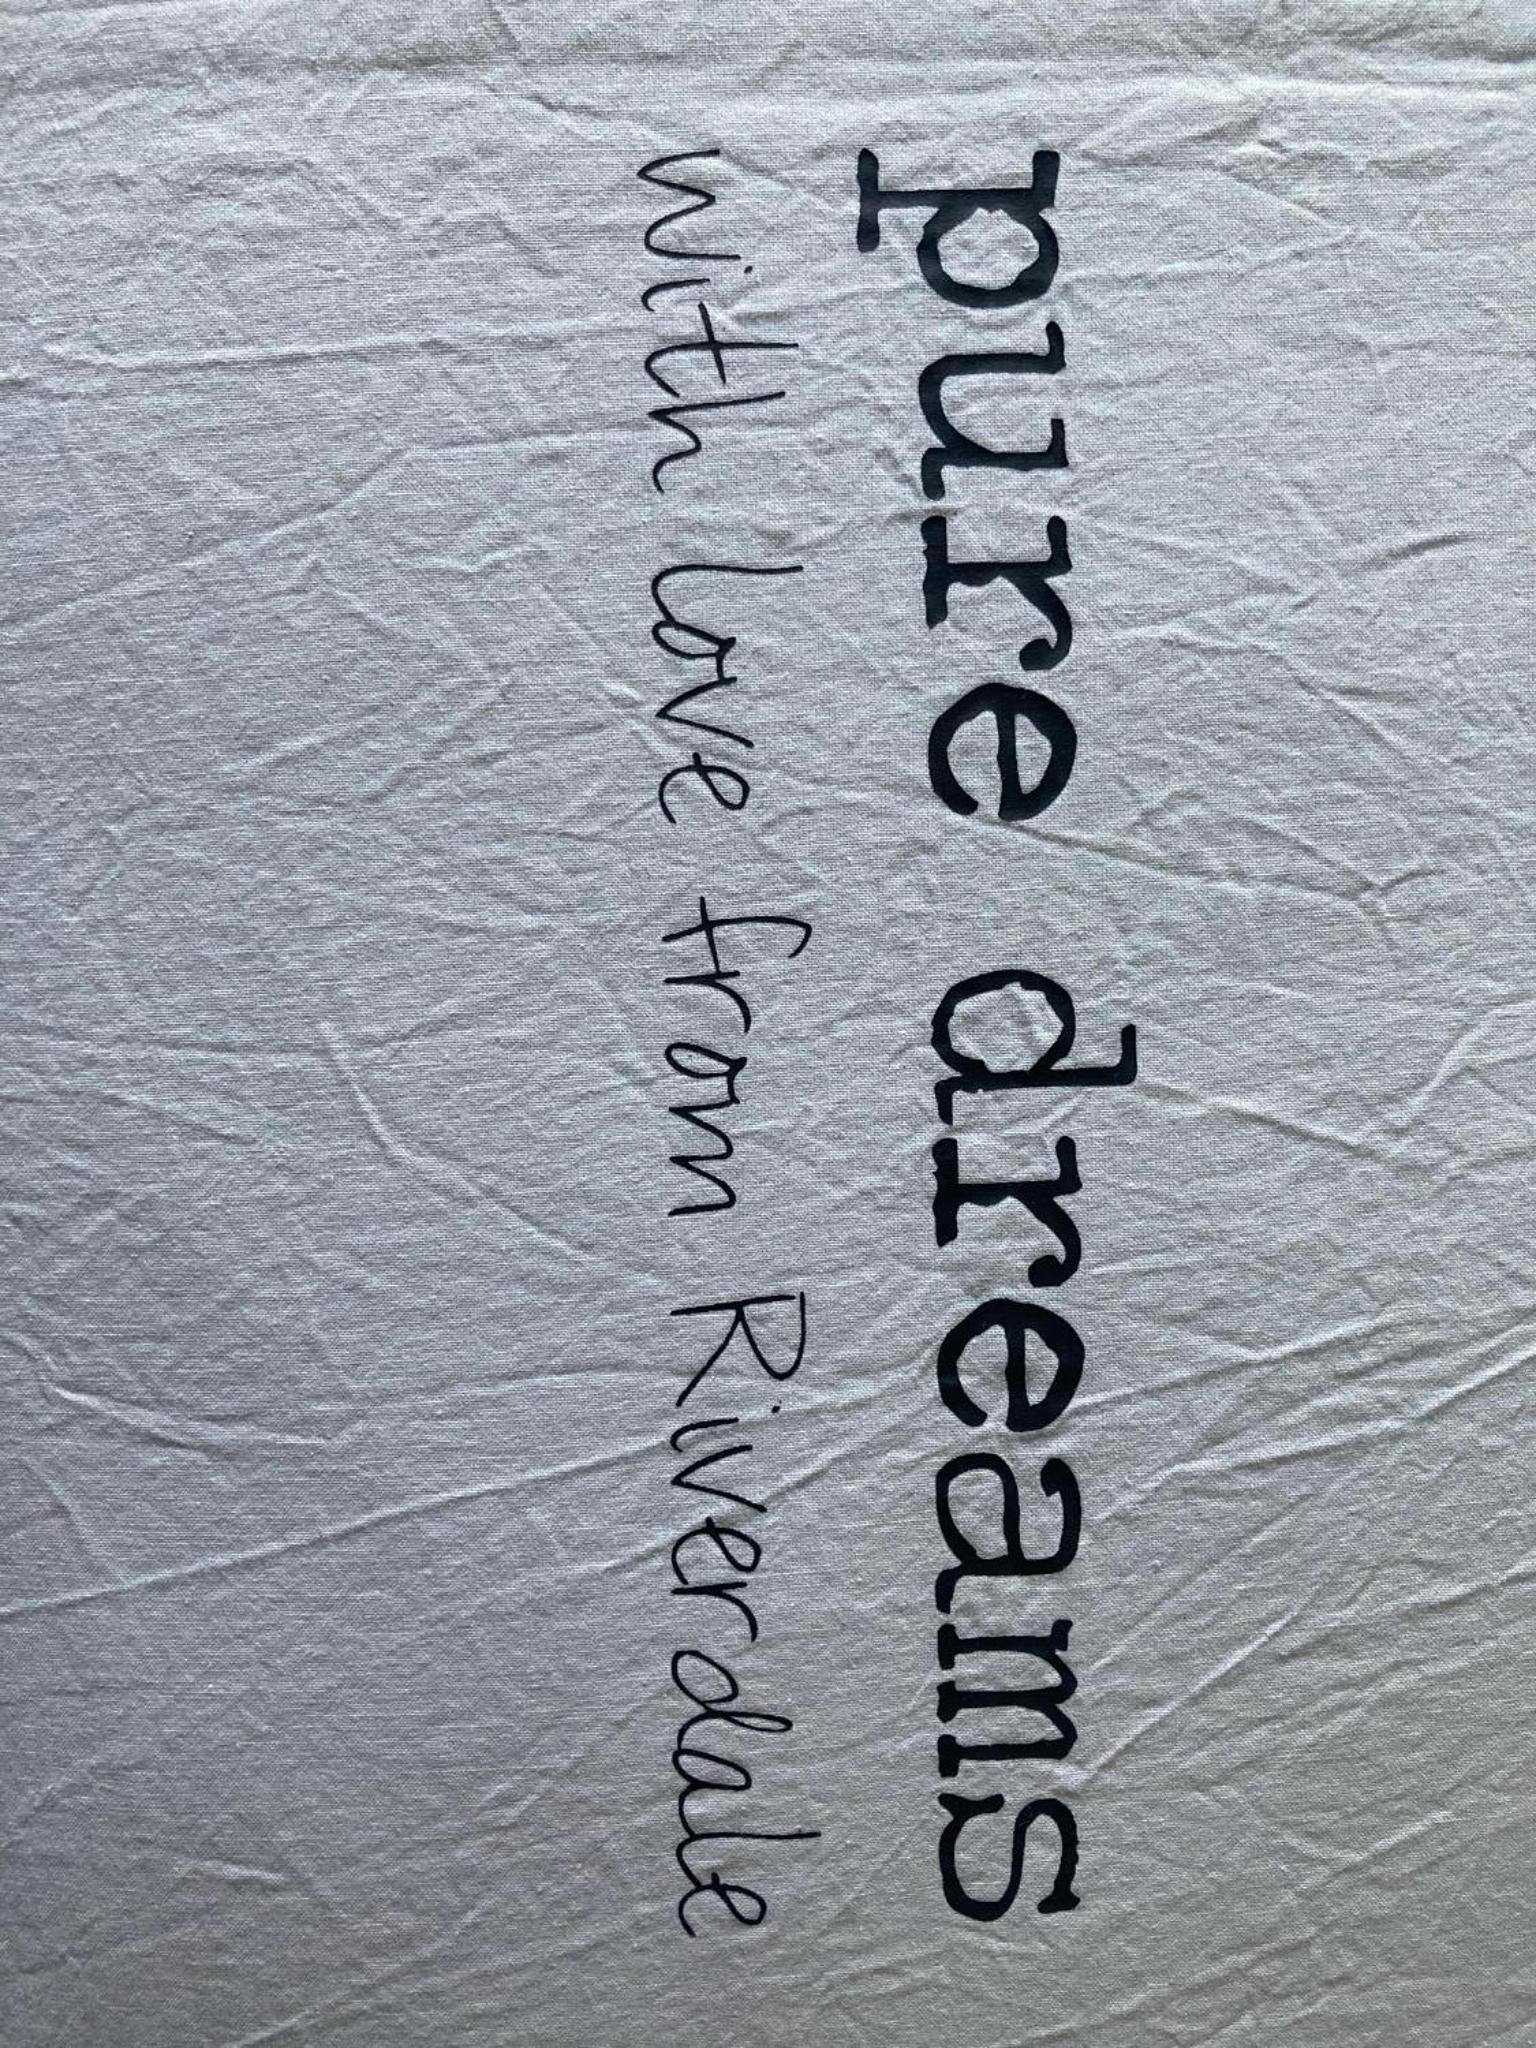 pure dreams
with love from Riverdale